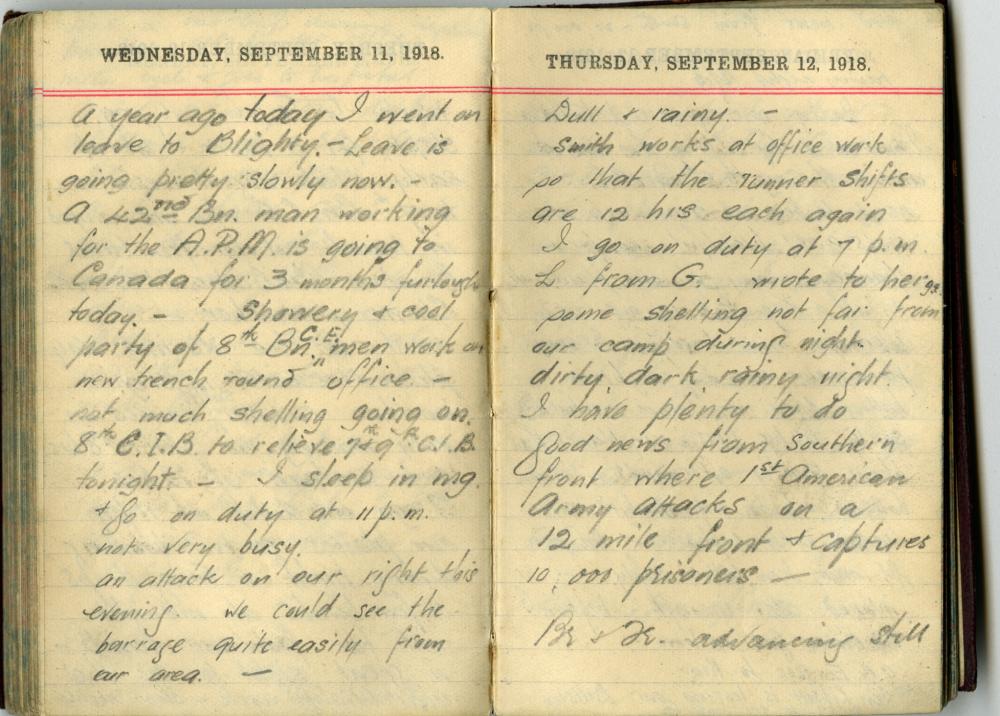 WEDNESDAY, SEPTEMBER 11, 1918.
A year ago today I went on
leave to Blighty. - Leave is
going pretty slowly now. -
A 42nd Bn. man working
for the A.P.M. is going to
Canada for 3 months furlough
today. - Showery & cool
party of 8th Bn. C.E. men work on
new trench round "office. -
not much shelling going on.
8th C.I.B. to relieve 7th & 9th C.I.B.
tonight. - I sleep in mg.
& go on duty at 11 p.m.
not very busy.
an attack on our right this
evening. we could see the
barrage quite easily from
our area. -
THURSDAY, SEPTEMBER 12, 1918.
Dull & rainy. -
Smith works at office work
so that the runner shifts
are 12 hrs each again
I go on duty at 7 p.m.
L from G. wrote to her
some shelling not far from
our camp during night.
dirty, dark, rainy night.
I have plenty to do
Good news from Southern
front where 1st American
Army attacks on a
12 mile front & captures
10,000 prisoners -
Br. & Fr. advancing still